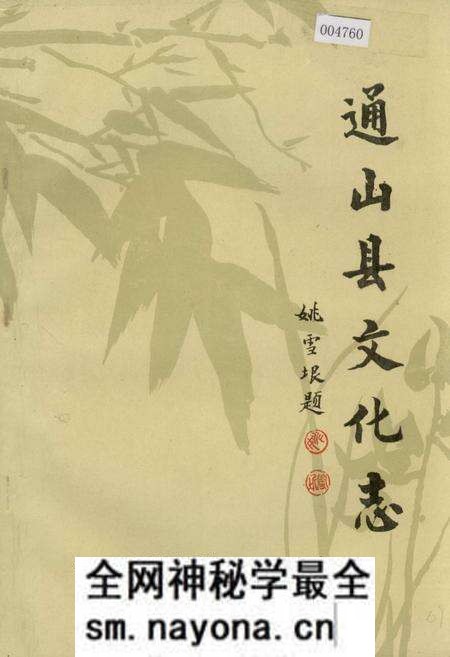 004760
通山县文化志
姚雪垠题
全网神秘学最全
sm.nayona.cn